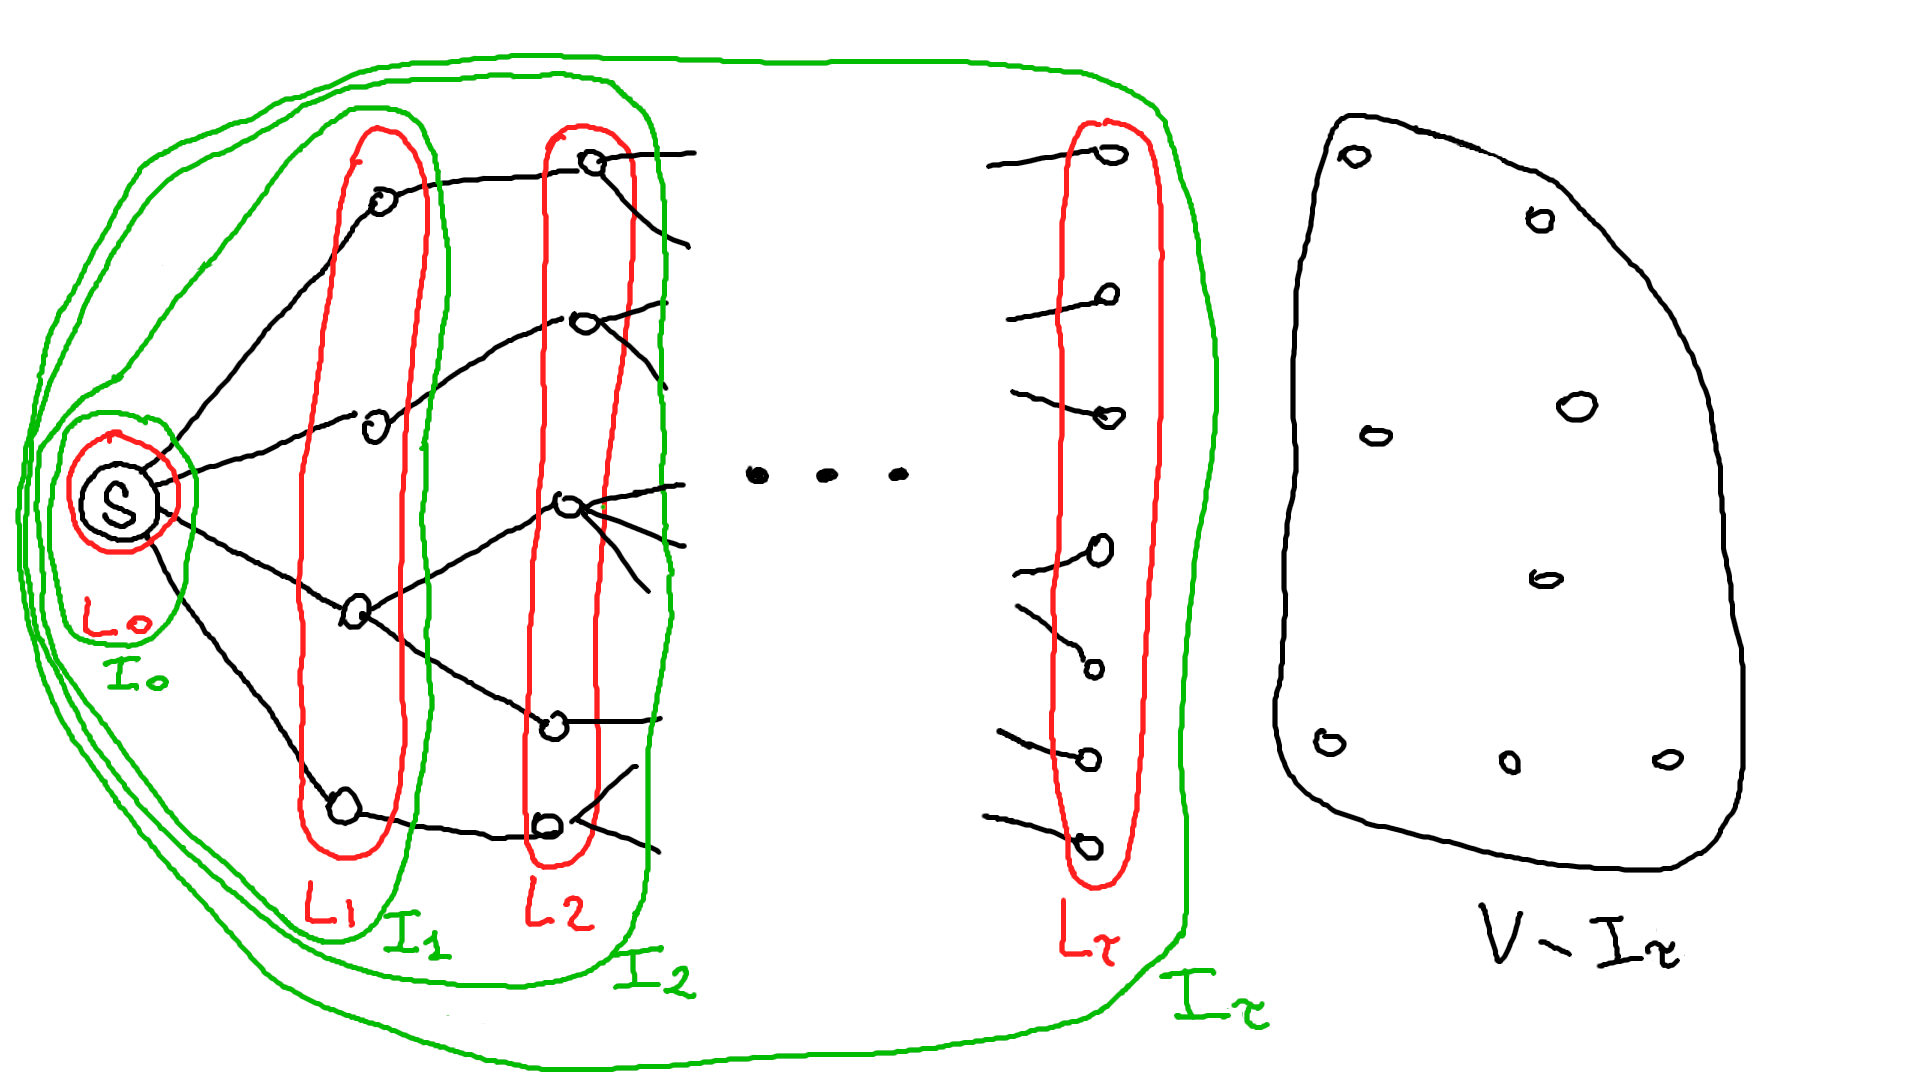 S
L0
I0
L1
I1
L2
I2
Lτ
Iτ
V - Iτ